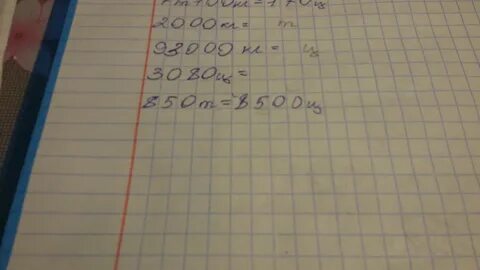 100кг=170ц
2000кг= т
93000кг= ц
3080ц=
850т=8500ц